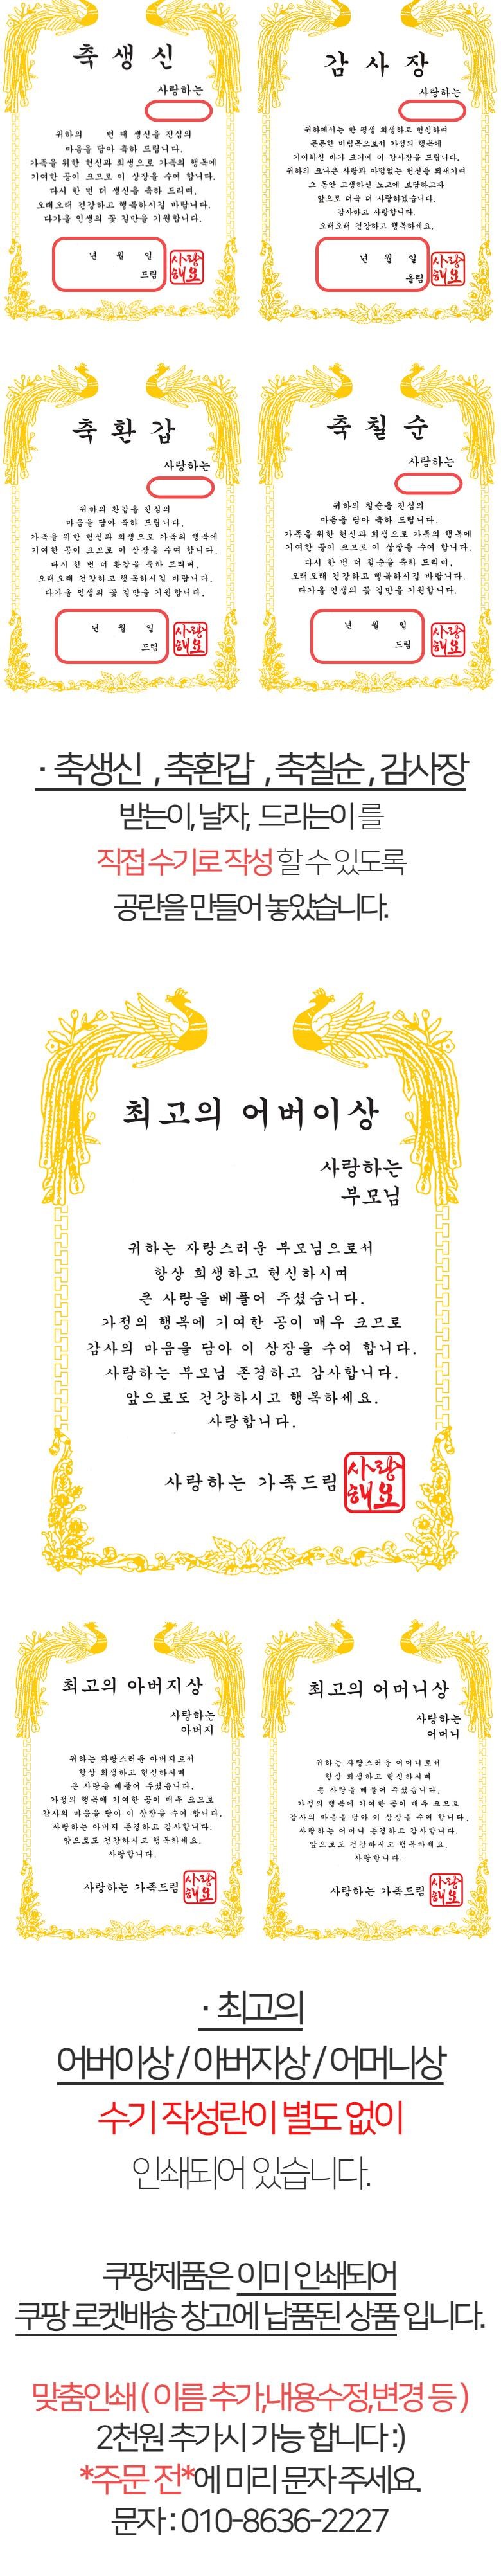 축 생 신
사랑하는
귀하의 번 째 생신을 진심의
마음을 담아 축하 드립니다.
가족을 위한 헌신과 희생으로 가족의 행복에
기여한 공이 크므로 이 상장을 수여 합니다.
다시 한 번 더 생신을 축하 드리며,
오래오래 건강하고 행복하시길 바랍니다.
다가올 인생의 꽃 길만을 기원합니다.
년 월 일
드림
사랑
해요
감 사 장
사랑하는
귀하께서는 한 평생 희생하고 헌신하며
든든한 버팀목으로서 가정의 행복에
기여하신 바가 크기에 이 감사장을 드립니다.
귀하의 크나큰 사랑과 아낌없는 헌신을 되새기며
그 동안 고생하신 노고에 보답하고자
앞으로 더욱 더 사랑하겠습니다.
감사하고 사랑합니다.
오래오래 건강하고 행복하세요.
년 월 일
올림
사랑
해요
축 환 갑
사랑하는
귀하의 환갑을 진심의
마음을 담아 축하 드립니다.
가족을 위한 헌신과 희생으로 가족의 행복에
기여한 공이 크므로 이 상장을 수여 합니다.
다시 한 번 더 환갑을 축하 드리며,
오래오래 건강하고 행복하시길 바랍니다.
다가올 인생의 꽃 길만을 기원합니다.
년 월 일
드림
사랑
해요
축 칠 순
사랑하는
귀하의 칠순을 진심의
마음을 담아 축하 드립니다.
가족을 위한 헌신과 희생으로 가족의 행복에
기여한 공이 크므로 이 상장을 수여 합니다.
다시 한 번 더 칠순을 축하 드리며,
오래오래 건강하고 행복하시길 바랍니다.
다가올 인생의 꽃 길만을 기원합니다.
년 월 일
드림
사랑
해요
· 축생신 , 축환갑 , 축칠순 , 감사장
받는이, 날자, 드리는이 를
직접 수기로 작성 할 수 있도록
공란을 만들어 놓았습니다.
최고의 어버이상
사랑하는
부모님
귀하는 자랑스러운 부모님으로서
항상 희생하고 헌신하시며
큰 사랑을 베풀어 주셨습니다.
가정의 행복에 기여한 공이 매우 크므로
감사의 마음을 담아 이 상장을 수여 합니다.
사랑하는 부모님 존경하고 감사합니다.
앞으로도 건강하시고 행복하세요.
사랑합니다.
사랑하는 가족드림
사랑
해요
최고의 아버지상
사랑하는
아버지
귀하는 자랑스러운 아버지로서
항상 희생하고 헌신하시며
큰 사랑을 베풀어 주셨습니다.
가정의 행복에 기여한 공이 매우 크므로
감사의 마음을 담아 이 상장을 수여 합니다.
사랑하는 아버지 존경하고 감사합니다.
앞으로도 건강하시고 행복하세요.
사랑합니다.
사랑하는 가족드림
사랑
해요
최고의 어머니상
사랑하는
어머니
귀하는 자랑스러운 어머니로서
항상 희생하고 헌신하시며
큰 사랑을 베풀어 주셨습니다.
가정의 행복에 기여한 공이 매우 크므로
감사의 마음을 담아 이 상장을 수여 합니다.
사랑하는 어머니 존경하고 감사합니다.
앞으로도 건강하시고 행복하세요.
사랑합니다.
사랑하는 가족드림
사랑
해요
· 최고의
어버이상 / 아버지상 / 어머니상
수기 작성란이 별도 없이
인쇄되어 있습니다.
쿠팡제품은 이미 인쇄되어
쿠팡 로켓배송 창고에 납품된 상품 입니다.
맞춤인쇄 ( 이름 추가,내용수정,변경 등 )
2천원 추가시 가능 합니다 :)
*주문 전*에 미리 문자 주세요.
문자 : 010-8636-2227